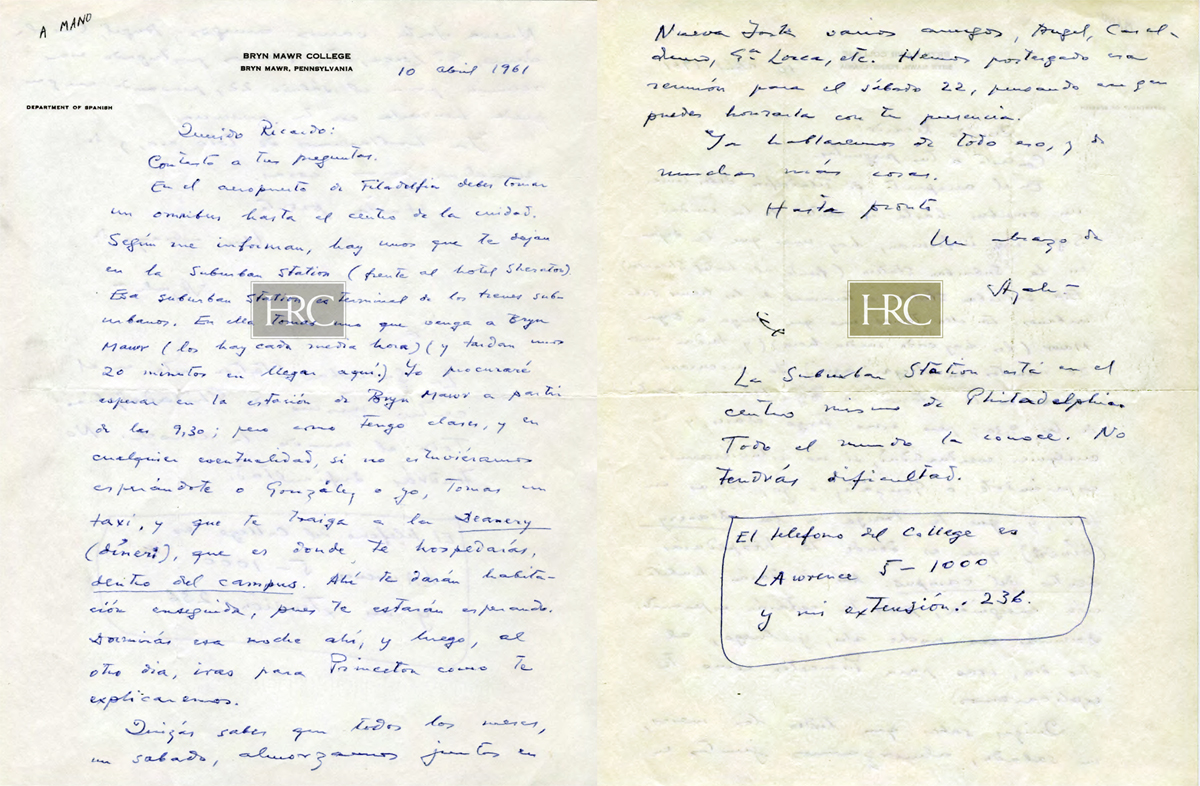 A MANO
BRYN MAWR COLLEGE
BRYN MAWR, PENNSYLVANIA
10 abril 1961
DEPARTMENT OF SPANISH
Querido Ricardo:
Contesto a tus preguntas.
En el aeropuerto de Filadelfia debes tomar
un omnibus hasta el centro de la ciudad.
Según me informan, hay unos que te dejan
en la Suburban Station (frente al hotel Sheraton).
Esa Suburban Station es terminal de los trenes sub-
urbanos. En ella tomas uno que venga a Bryn
Mawr (los hay cada media hora) (y tardan unos
20 minutos en llegar aquí.) Yo procuraré
esperar en la estación de Bryn Mawr a partir
de las 9,30; pero como tengo clases, y en
cualquier eventualidad, si no estuviéramos
esperándote o González o yo, tomas un
taxi, y que te traiga a la Deanery
(díneri), que es donde te hospedarás,
dentro del campus. Ahí te darán habita-
ción enseguida, pues te estarán esperando.
Dormirás esa noche ahí, y luego, al
otro día, irás para Princeton como te
explicaremos.
Quizás sabes que todos los meses,
un sábado, almorzamos juntos en
Nueva York varios amigos, Angel, Casal-
duero, Gª Lorca, etc. Hemos postergado esa
reunión para el sábado 22, pensando en que
puedes honrarla con tu presencia.
Ya hablaremos de todo eso, y de
muchas más cosas.
Hasta pronto
Un abrazo de
Ayala
HRC
HRC
La Suburban Station está en el
centro mismo de Philadelphia
Todo el mundo la conoce. No
tendrás dificultad.
El teléfono del College es
LAwrence 5-1000
y mi extensión: 236.